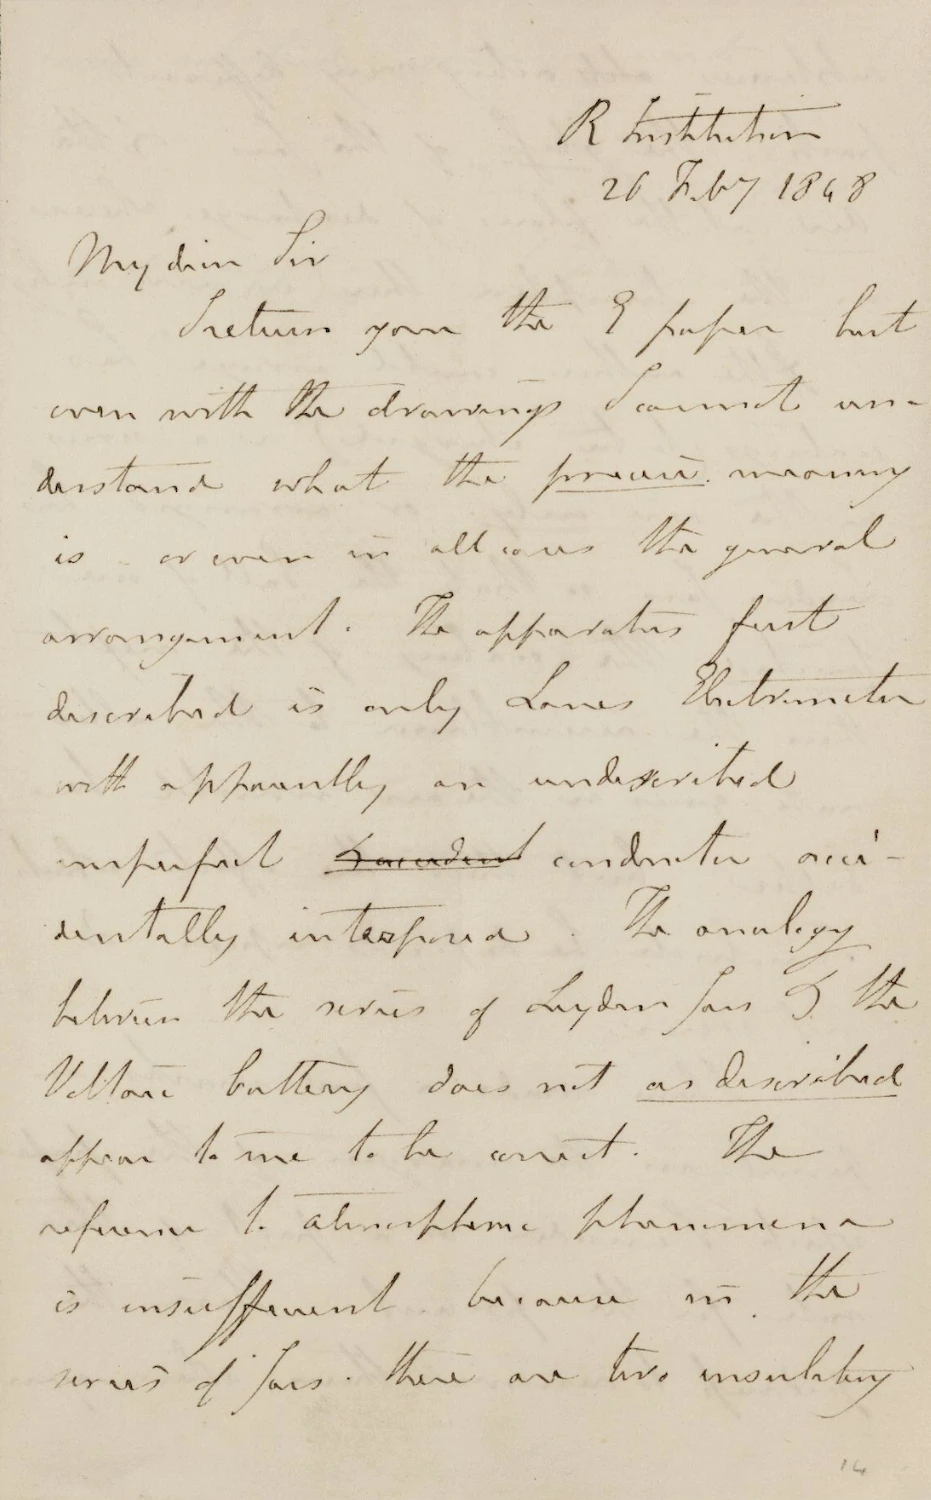 R Institution
26 Feby 1848
My dear Sir
I return you the E paper but
even with the drawings I cannot un-
derstand what the precise meaning
is or even in all cases the general
arrangement. The apparatus first
described is only Lanes Electrometer
with apparently an undescribed
imperfect conductor acci-
dentally interposed. The analogy
between the series of Leyden Jars & the
Voltaic battery does not as described
appear to me to be correct. The
reference to atmospheric phenomena
is insufficient because in the
series of Jars. there are two insulating
14